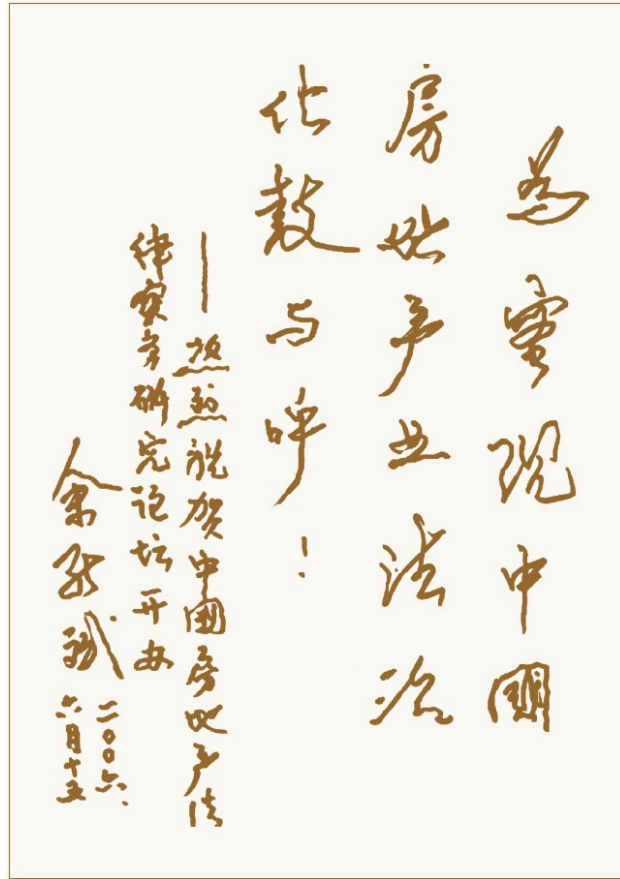 为实现中國
房地产业法治
化鼓与呼！
——热烈祝贺中國房地产法
律实务研究论坛开办
余能斌
二〇〇六.
六月十五